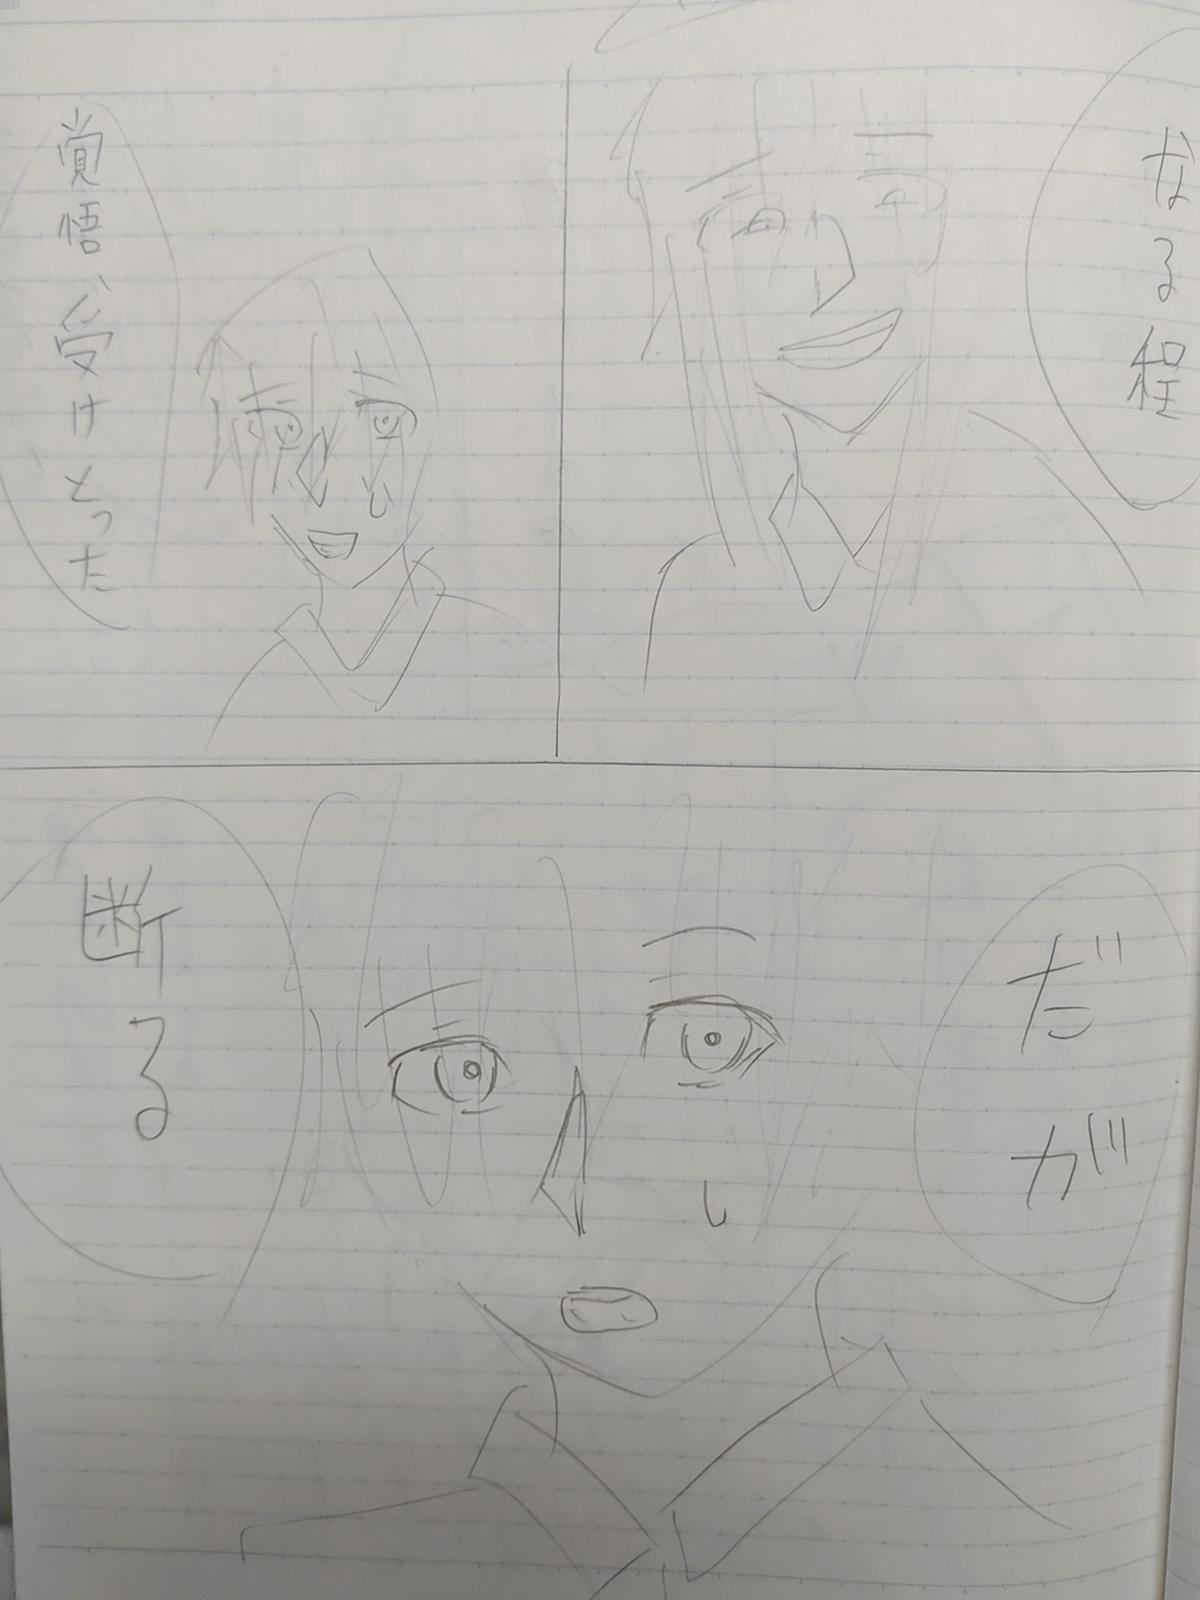 なる程
覚悟、受けとった
だが
断る